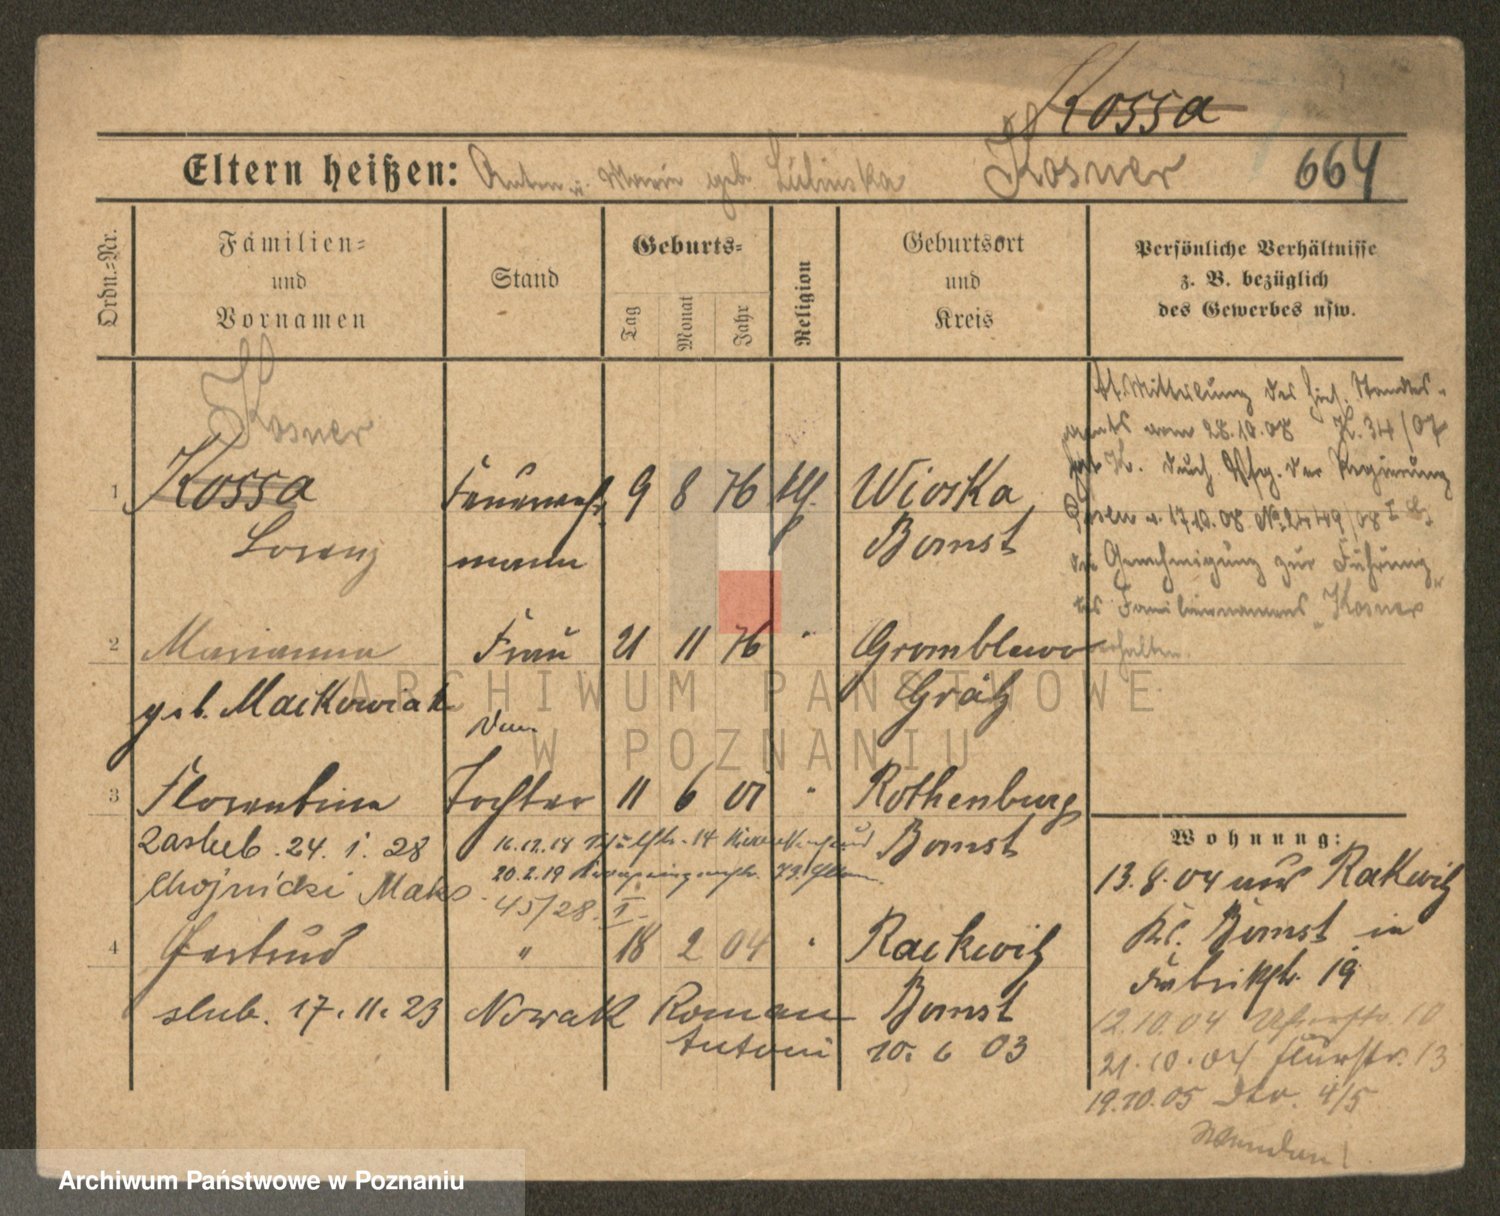 Kossa
Eltern heißen: Anton u. Marie geb. Lubinska Kosner 664
Ordn.-Nr.
Familien-
und
Vornamen
Stand
Geburts-
Tag
Monat
Jahr
Religion
Geburtsort
und
Kreis
Persönliche Verhältnisse
z. B. bezüglich
des Gewerbes usw.
Kosner
1 Kossa Feuerwehr 9 8 76 Wioska
Lorenz mann Bomst
2 Marianna Frau 21 11 76 " Gromblewo
geb. Mackowiak Grätz
3 Florentine Tochter 11 6 01 " Rothenburg
zaslub. 24. 1. 28 16.12.14 14 Bomst
Chojnicki Maks 20.2.19
45/28. I
4 Gertrud " 18 2 04 " Rackwitz
slub. 17. 11. 23 Nowak Roman Bomst
Antoni 10. 6 03
Mitteilung des hies. Standes-
amts vom 28.10.08 K. 34/07
hat K. durch Vfg. der Regierung
Posen v. 17.10.08 No 2449/08 I
die Genehmigung zur Führung
des Familiennamens "Kosner"
erhalten.
Wohnung:
13.8.04 aus Rakwitz
Kr. Bomst in
Fabrikstr. 19
12.10.04 10
21.10.04 Flurstr. 13
19.10.05 Dto. 4/5
Wenden!
ARCHIWUM PAŃSTWOWE
W POZNANIU
Archiwum Państwowe w Poznaniu